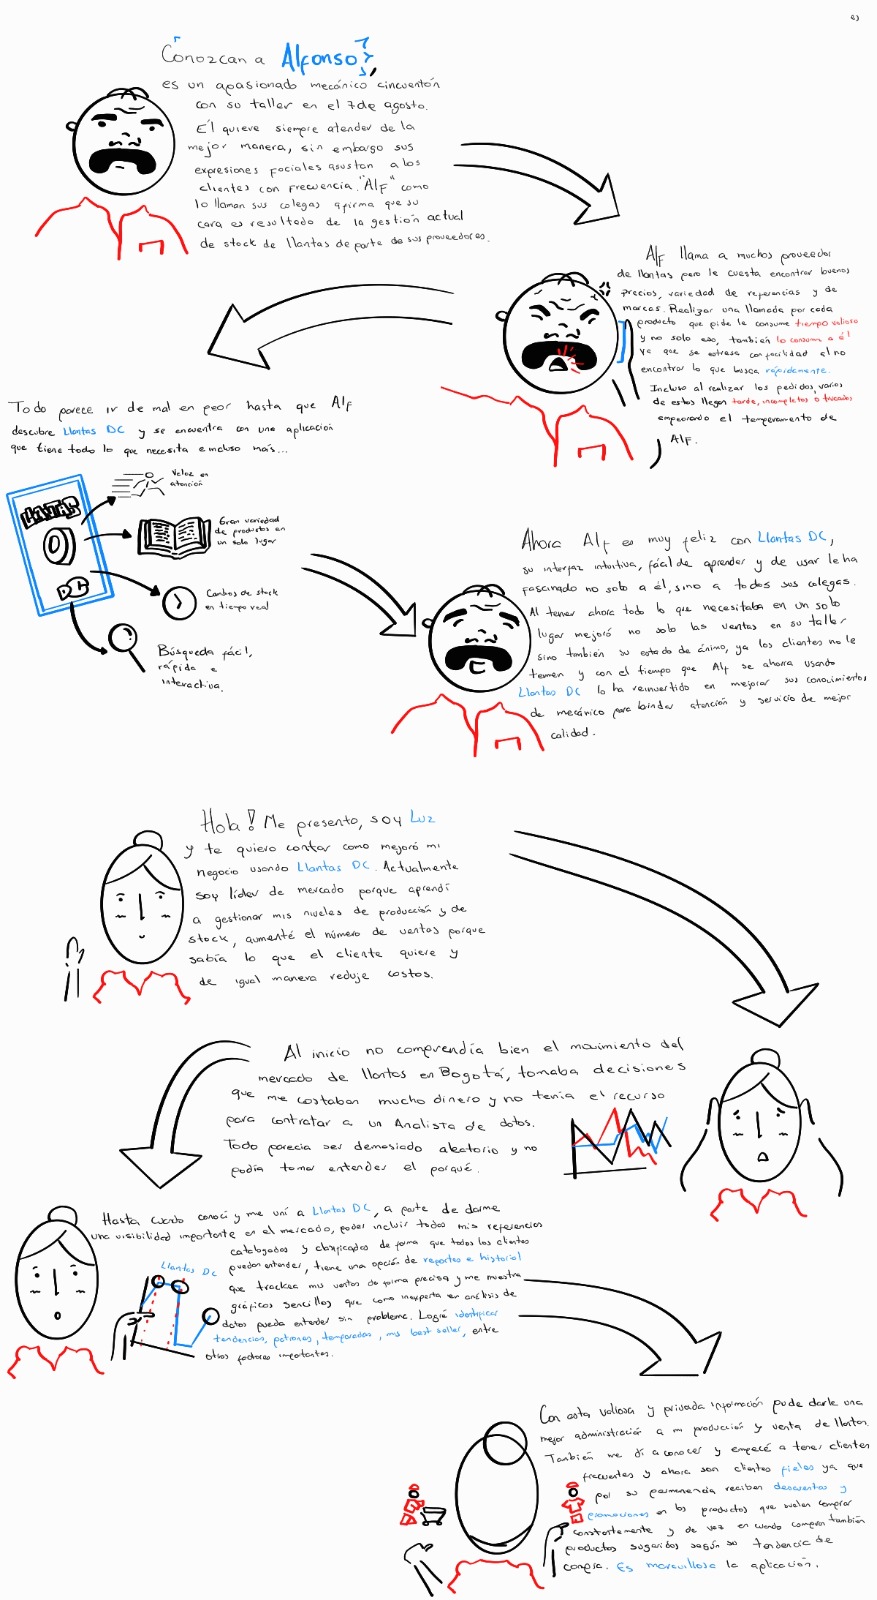 Conozcan a Alfonso,
es un apasionado mecánico cincuentón
con su taller en el 7 de agosto.
Él quiere siempre atender de la
mejor manera, sin embargo sus
expresiones faciales asustan a los
clientes con frecuencia. "Alf" como
lo llaman sus colegas afirma que su
cara es resultado de la gestión actual
de stock de llantas de parte de sus proveedores.
Alf llama a muchos proveedor
de llantas pero le cuesta encontrar buenos
precios, variedad de referencias y de
marcas. Realizar una llamada por cada
producto que pide le consume tiempo valioso
y no solo eso, también lo consume a él
ya que se estresa con facilidad al no
encontrar lo que busca rápidamente.
Incluso al realizar los pedidos, varios
de estos llegan tarde, incompletos o trucados
empeorando el temperamento de
Alf.
Todo parece ir de mal en peor hasta que Alf
descubre Llantas DC y se encuentra con una aplicación
que tiene todo lo que necesita e incluso más...
LLANTAS
DC
Veloz en
atención
Gran variedad
de productos en
un solo lugar
Cambios de stock
en tiempo real
Búsqueda fácil,
rápida e
interactiva.
Ahora Alf es muy feliz con Llantas DC,
su interfaz intuitiva, fácil de aprender y de usar le ha
fascinado no solo a él, sino a todos sus colegas.
Al tener ahora todo lo que necesitaba en un solo
lugar mejoró no solo las ventas en su taller
sino también su estado de ánimo, ya los clientes no le
temen y con el tiempo que Alf se ahorra usando
Llantas DC lo ha reinvertido en mejorar sus conocimientos
de mecánico para brindar atención y servicio de mejor
calidad.
Hola! Me presento, soy Luz
y te quiero contar como mejoró mi
negocio usando Llantas DC. Actualmente
soy líder de mercado porque aprendí
a gestionar mis niveles de producción y de
stock, aumenté el número de ventas porque
sabía lo que el cliente quiere y
de igual manera reduje costos.
Al inicio no comprendía bien el movimiento del
mercado de llantas en Bogotá, tomaba decisiones
que me costaban mucho dinero y no tenía el recurso
para contratar a un Analista de datos.
Todo parecía ser demasiado aleatorio y no
podía tomar entender el porqué.
Hasta cuando conocí y me uní a Llantas DC, a parte de darme
una visibilidad importante en el mercado, poder incluir todas mis referencias
catalogadas y clasificadas de forma que todos los clientes
puedan entender, tiene una opción de reportes e historial
que trackea mis ventas de forma precisa y me muestra
gráficos sencillos que como inexperta en análisis de
datos puedo entender sin problema. Logré identificar
tendencias, patrones, temporadas, mis best seller, entre
otros factores importantes.
Llantas DC
Con esta valiosa y privada información pude darle una
mejor administración a mi producción y venta de llantas.
También me di a conocer y empecé a tener clientes
frecuentes y ahora son clientes fieles ya que
por su permanencia reciben descuentos y
promociones en los productos que suelen comprar
constantemente y de vez en cuando compran también
productos sugeridos según su tendencia de
compra. Es maravillosa la aplicación.